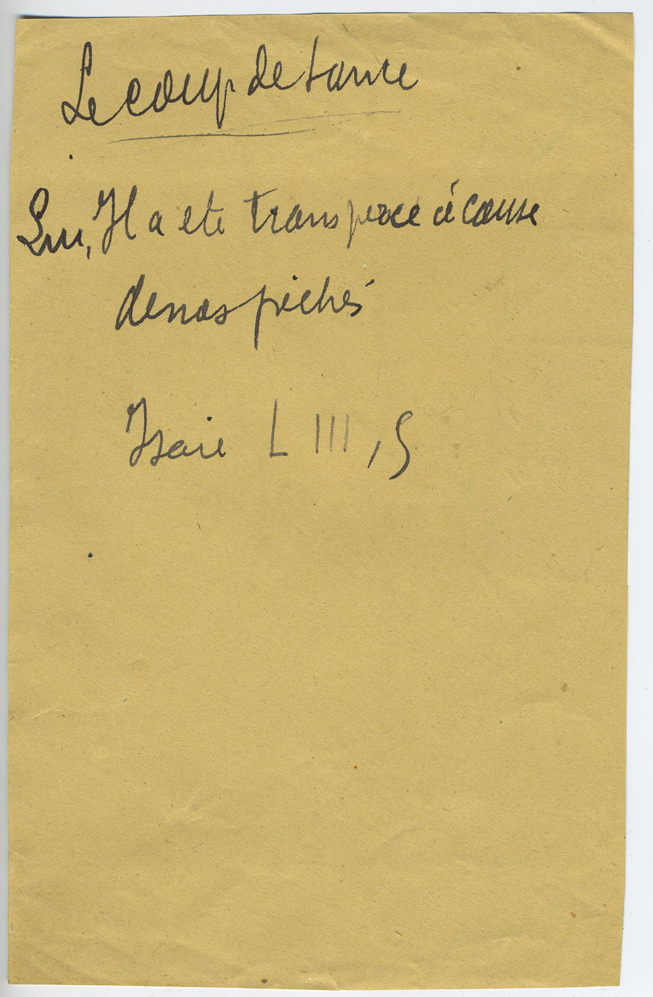 Le coup de lance
Lui, Il a ete transpercé à cause
de nos péchés
Isaie LIII, 5